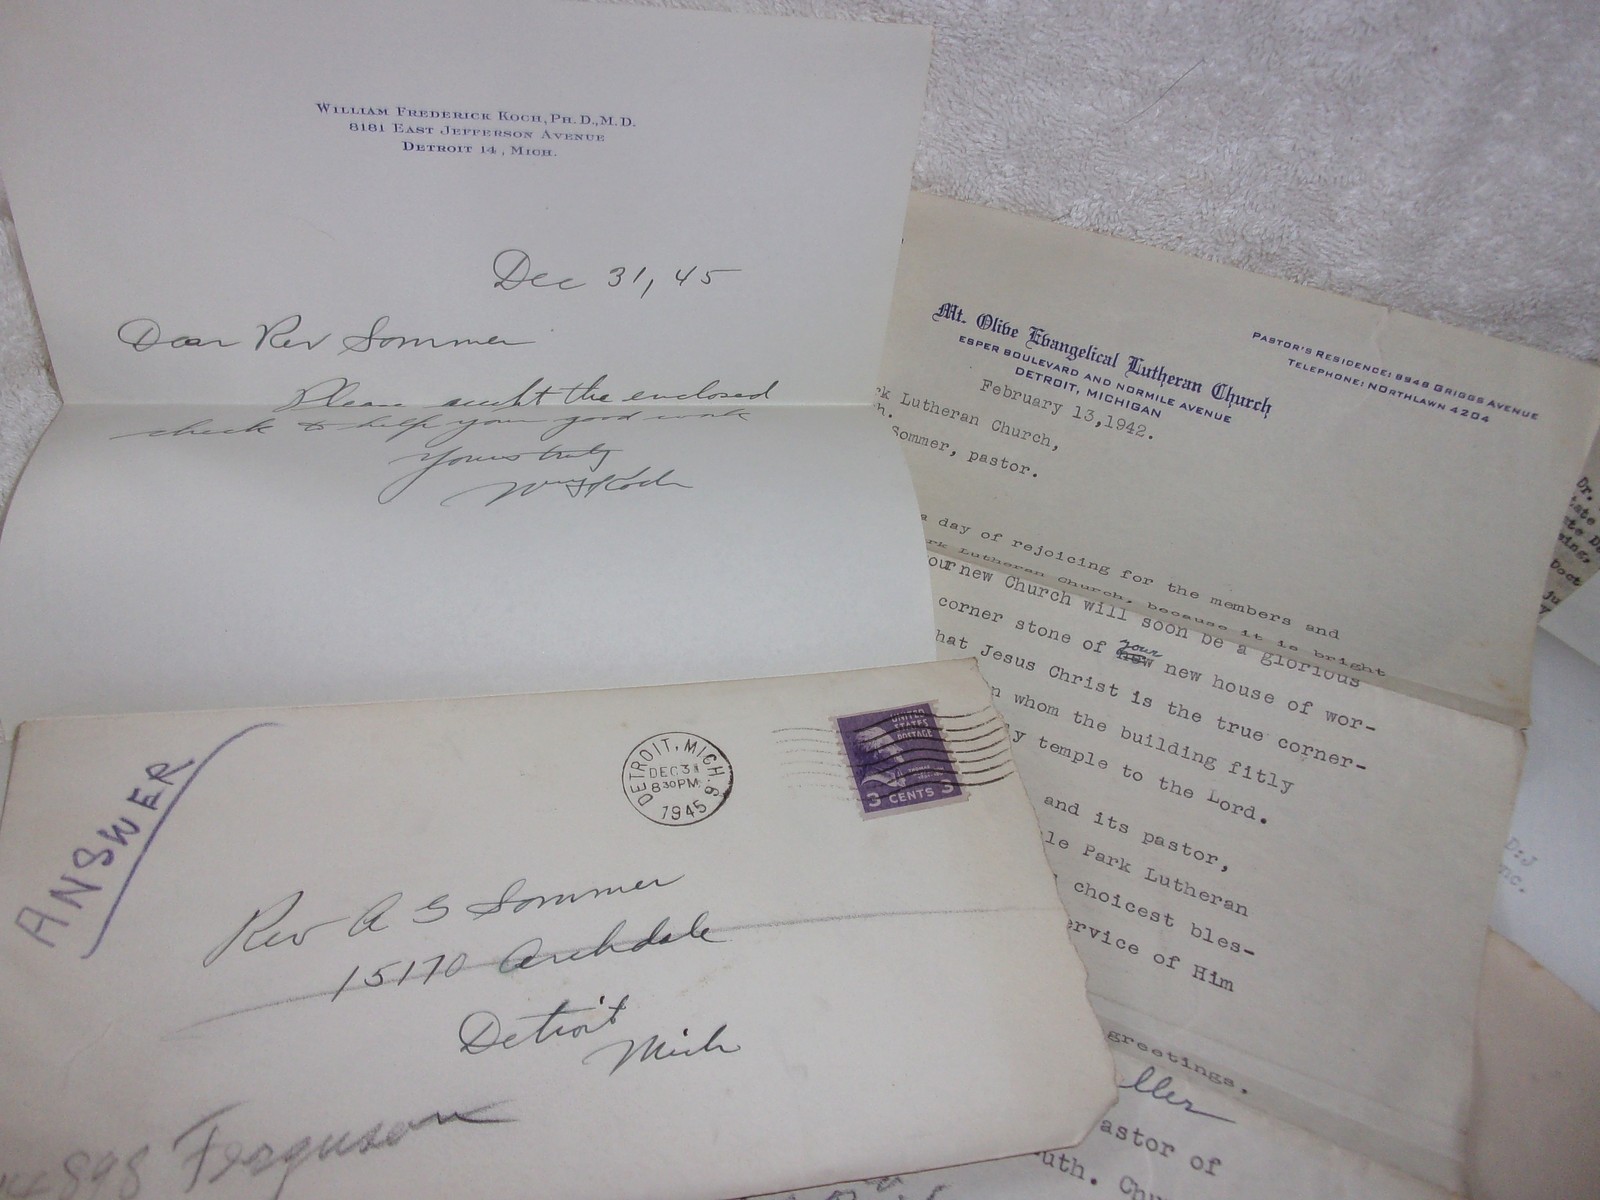 WILLIAM FREDERICK KOCH, PH. D., M. D.
8181 EAST JEFFERSON AVENUE
DETROIT 14, MICH.
Dec 31, 45
Dear Rev Sommer
Please accept the enclosed
check to help your good work
Yours truly
Wm F Koch
ANSWER
DETROIT, MICH. 6
DEC 31
8 30 PM
1945
UNITED
STATES
POSTAGE
3 CENTS 3
Rev A G Sommer
15170 Archdale
Detroit
Mich
898 Ferguson
Mt. Olive Evangelical Lutheran Church
ESPER BOULEVARD AND NORMILE AVENUE
DETROIT, MICHIGAN
PASTOR'S RESIDENCE: 8948 GRIGGS AVENUE
TELEPHONE: NORTHLAWN 4204
February 13, 1942.
rk Lutheran Church,
h.
Sommer, pastor.
a day of rejoicing for the members and
rk Lutheran Church, because it is bright
your new Church will soon be a glorious
corner stone of your new house of wor-
hat Jesus Christ is the true corner-
n whom the building fitly
y temple to the Lord.
and its pastor,
le Park Lutheran
choicest bles-
ervice of Him
greetings.
ller
astor of
uth. Chu
Dr.
D:J
nc.